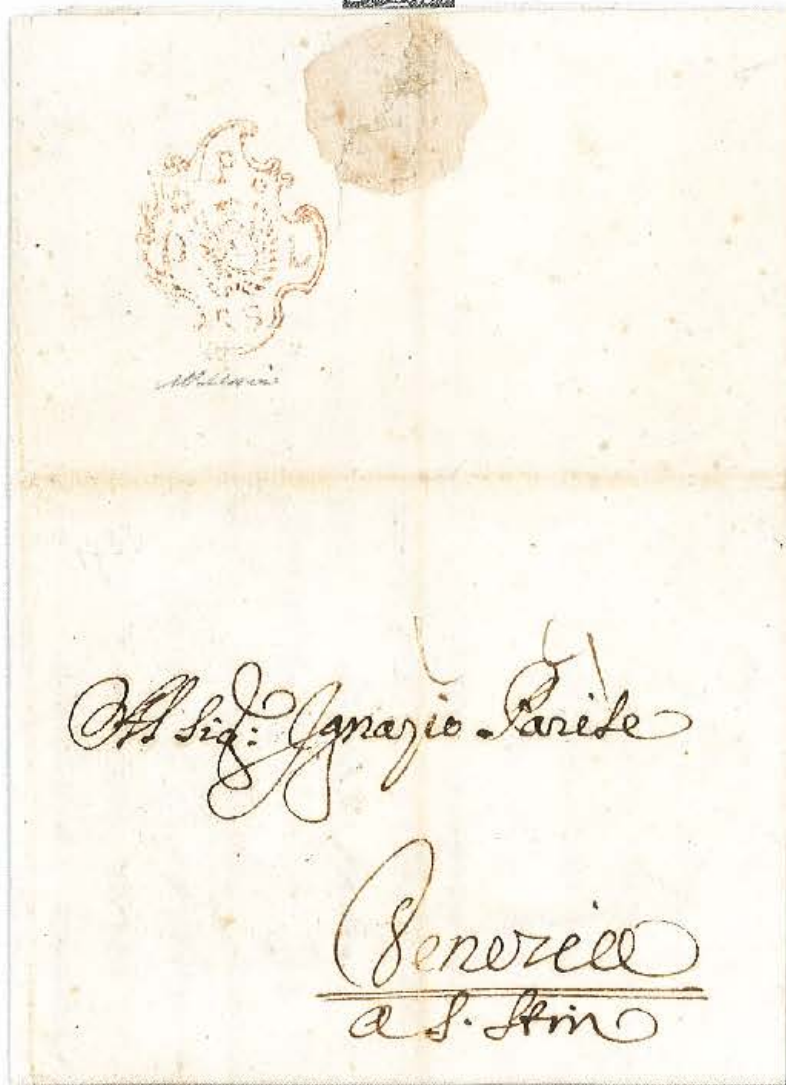 P P
D L
R S
All Sig.: Ignazio Parise
Venezia
a S. Stin